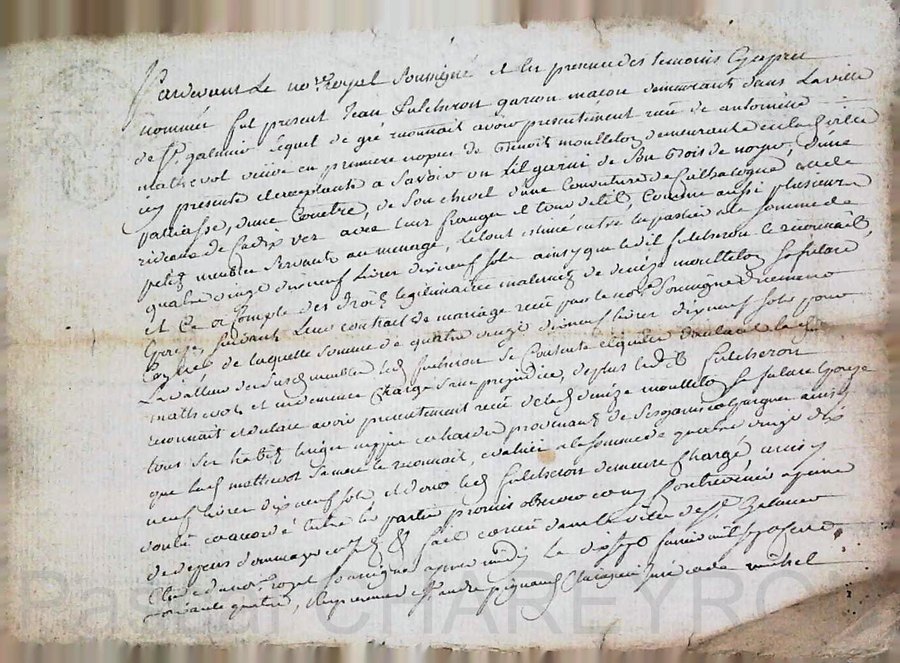 Pardevant Le nore Royal Soussigné et les presence des temoins cy apres
nommés fut present Jean fulcheron garcon macon demeurant dans La ville
de St galmier lequel de gré reconnait avoir presentement receu de antoinette
mathevot veuve en premiere nopces de Benoit moulleton demeurante en la d ville
icy presente et acceptante a Savoir un lit garni de Son Bois de noyer, d'une
palliasse, d'une Coultre, de Son chevet d'une Couverture de Cathalogne
rideaux de Cadix ver avec leur frange et tour de lit, Comme aussi plusieurs
petits meubles Servants au menage, le tout estimé entre les parties a la Somme de
quatre vingt dixneuf livres dixneuf Sols ainsy que le dit fulcheron le reconnait
et Ce a Compte des droits legitimaires maternels de denize moulleton Sa future
Epouse, Suivant leur contrait de mariage receu par le nore Soussigné
de laquelle Somme de quatre vingt dixneuf livres dixneuf Sols pour
La valleur des Susd meubles led fulcheron Se Contente et quitte
mathevot et en demeure Chargé Sans prejudice, de plus led fulcheron
reconnait et declare avoir presentement receu de lad denize moulleton Sa future Epouse
tous Ses habits linges nippes et hardes provenants de Ses gains et Epargnes ainsy
que lad mathevot Sa mere le reconnait, evalués a la Somme de quatre vingt dix
neuf livres dixneuf Sols, et dont led fulcheron demeure Chargé ainsy
convenu et accordé entre les parties promis observer a peine
de depens dommages fait dans la ville de St galmier
Royal Soussigné apres midy Le Sept cent
Soixante quatre, en presence de Sr andré michel
Pascal CHAREYRON